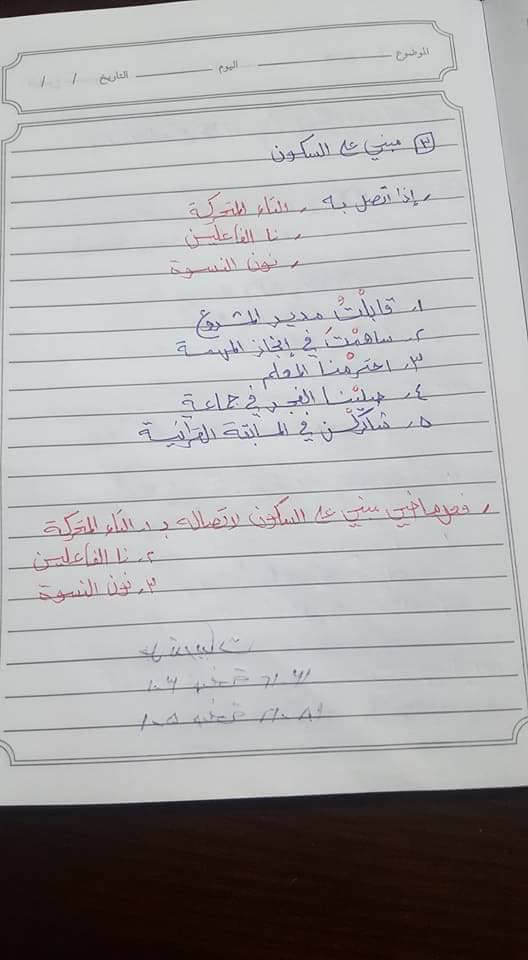 الموضوع اليوم التاريخ / /
٣ مبني على السكون
إذا اتصل به التاء المتحركة
نا الفاعلين
نون النسوة
١. قابلْتُ مدير المشروع
٢. ساهمْتَ في إنجاز المهمة
٣. احترمْنا المعلم
٤. صلينا الفجر في جماعة
٥. شاركْن في المسابقة القرآنية
فعل ماضي مبني على السكون لاتصاله بـ ١. التاء المتحركة
٢. نا الفاعلين
٣. نون النسوة